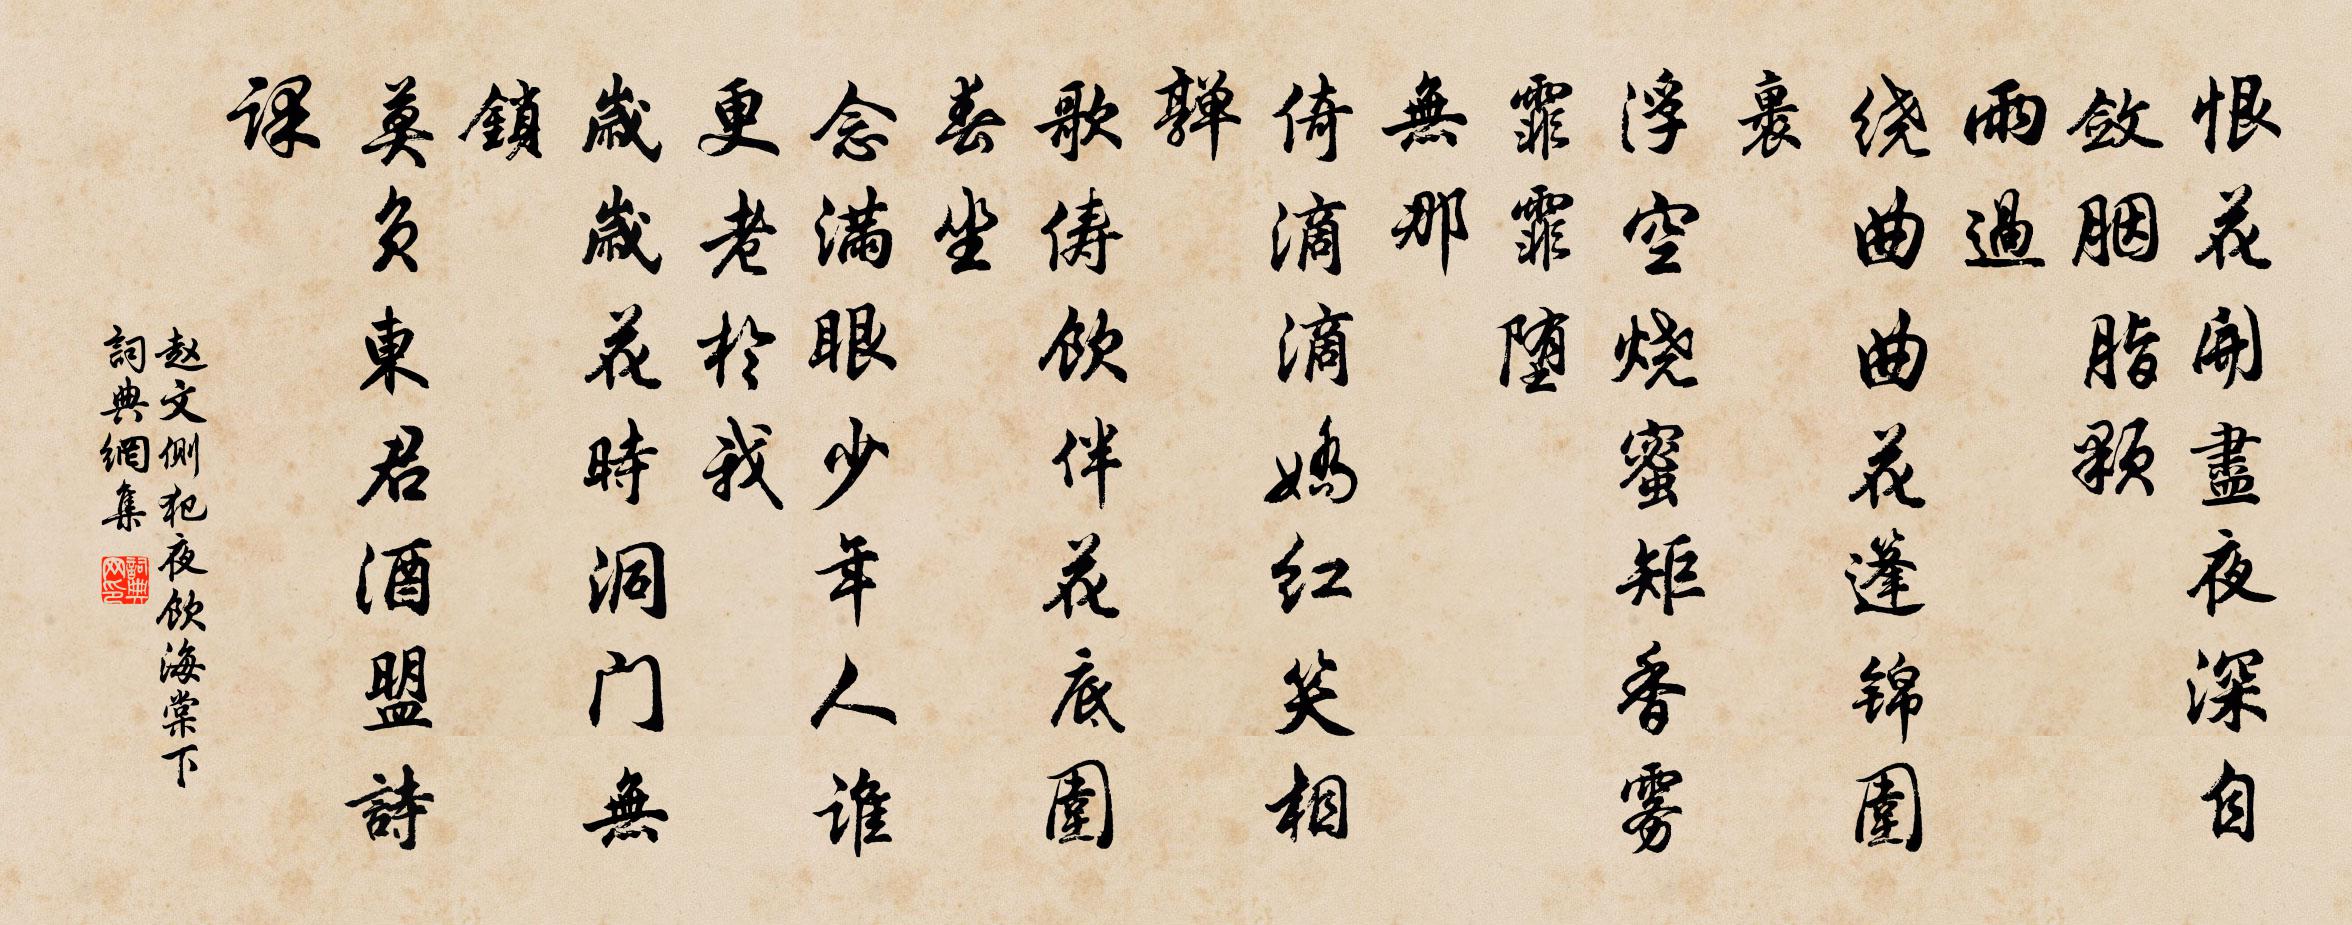 恨花開盡夜深自
斂胭脂顆
雨過
绕曲曲花蓬锦圍
裹
浮空烧蜜矩香雾
霏霏堕
無那
倚滴滴嬌红笑相
嚲
歌俦飲伴花底圍
春坐
念满眼少年人谁
更老於我
歲歲花時洞门無
鎖
莫負東君酒盟詩
课
赵文側犯夜飲海棠下
詞典網集
詞典网印